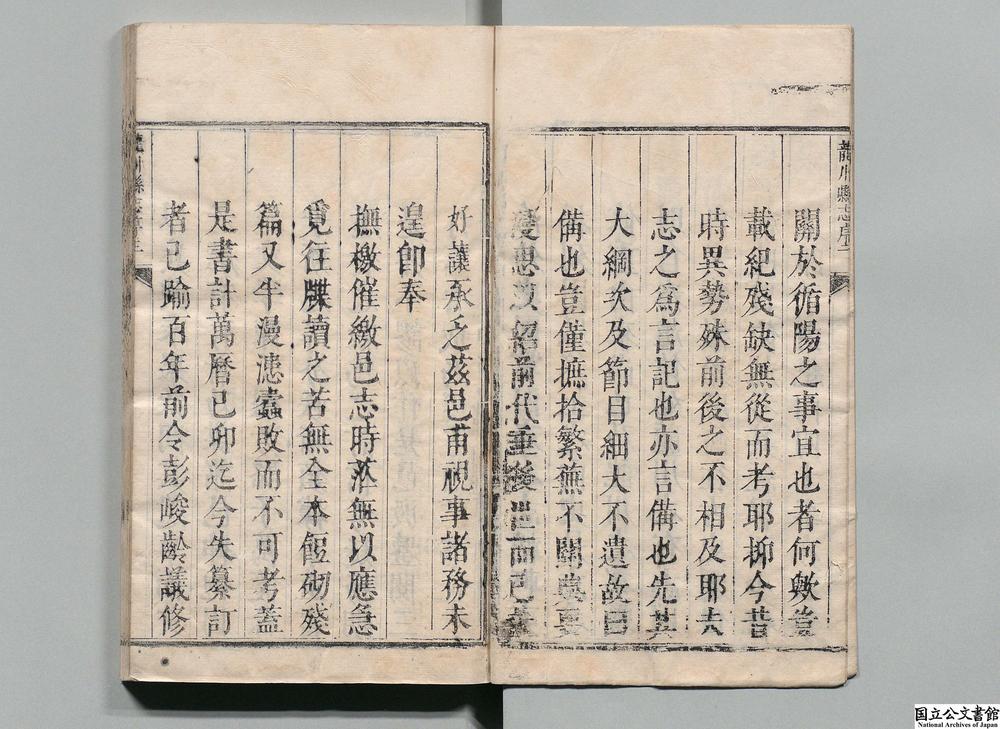 龍川縣志序
關於循陽之事宜也者何歟豈
載紀殘缺無從而考耶抑今昔
時異勢殊前後之不相及耶夫
志之為言記也亦言備也先其
大綱次及節目細大不遺故曰
備也豈僅摭拾繁蕪不關典要
前代垂後世而已
好讓承乏茲邑甫視事諸務未
遑即奉
撫檄催繳邑志時茫無以應急
覓往牒讀之苦無全本飽砌殘
篇又半漫漶蠹敗而不可考蓋
是書計萬曆己卯迄今失纂訂
者已踰百年前令彭峻齡議修
龍川縣志
国立公文書館
National Archives of Japan